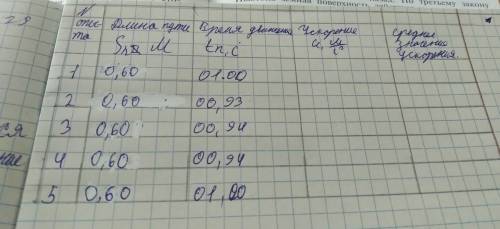 поверхность
По третьему закону
29
N
опы
та
Длина пути
S, М
Время движения
tп, с
Ускорение
а, м/с²
Среднее
значение
ускорения.
1 0,60 01.00
2 0,60 00,93
3 0,60 00,94
4 0,60 00,94
5 0,60 01,00
ся